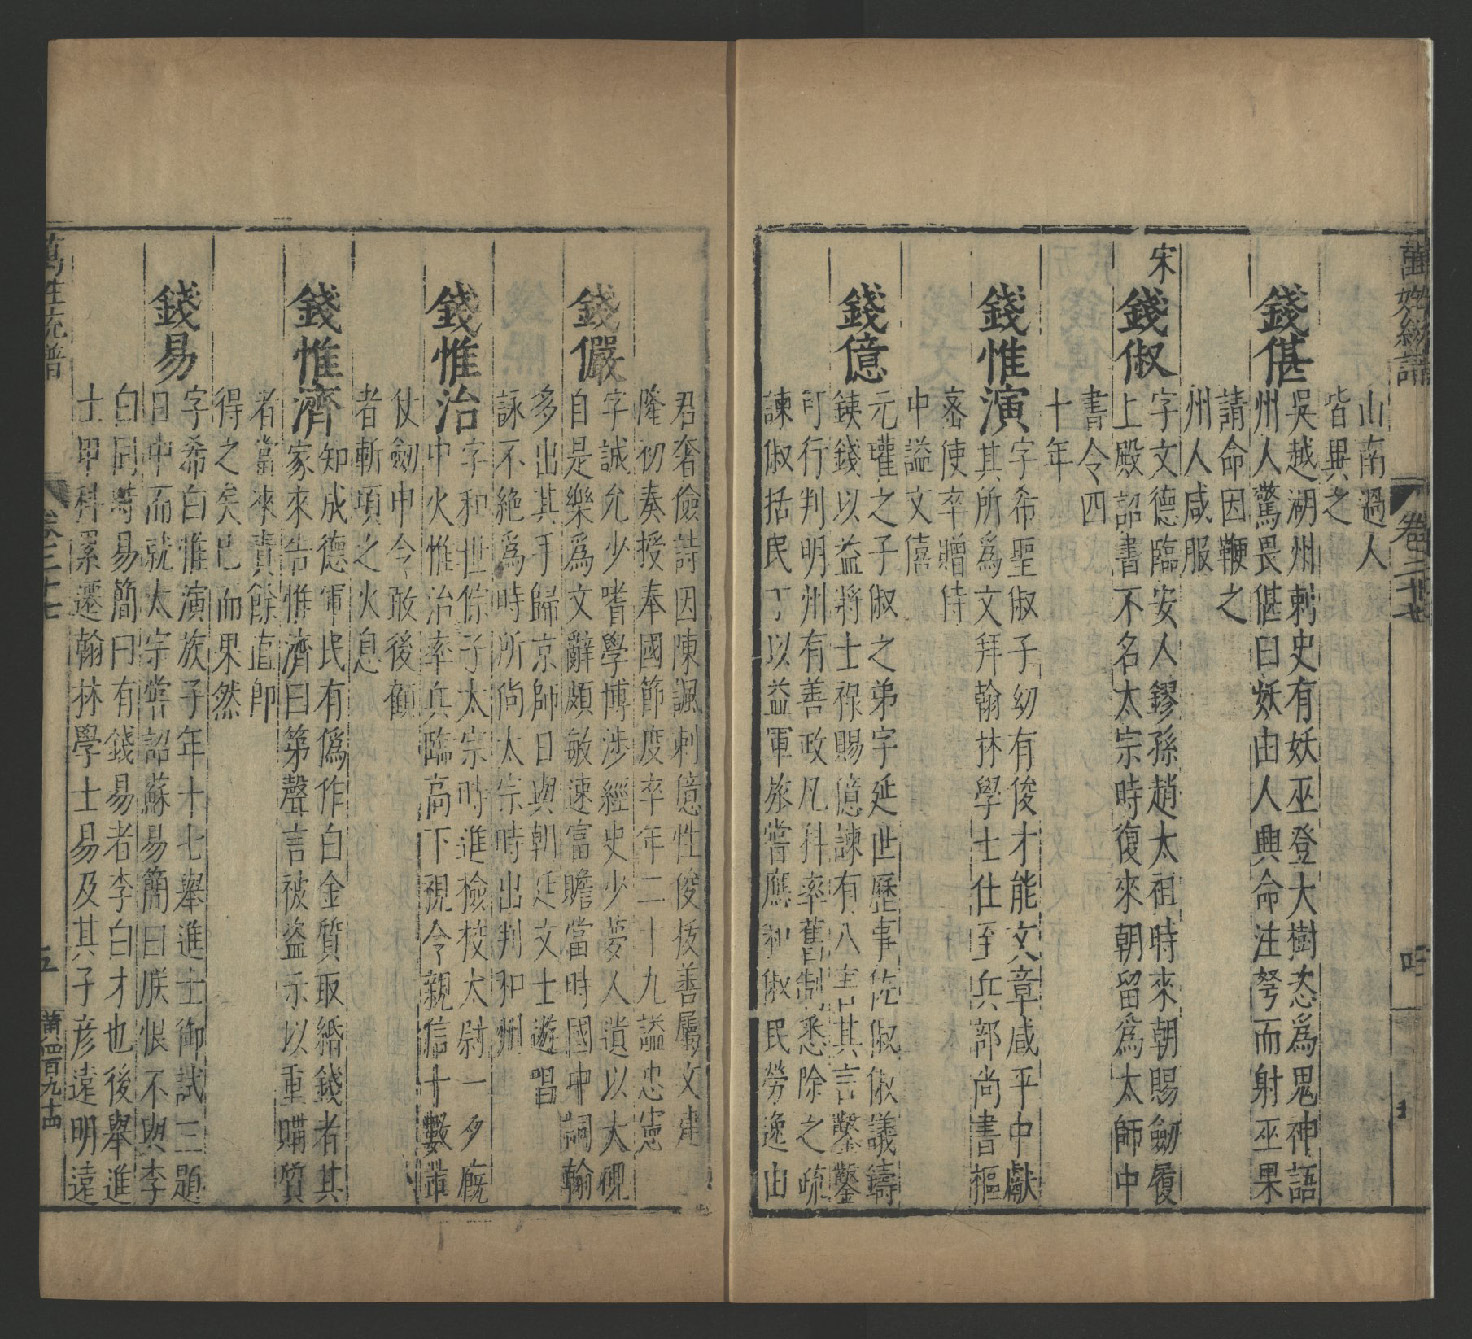 萬姓統譜
卷二十七
山南過人
皆異之
錢偡
吳越湖州刺史有妖巫登大樹恣為鬼神語
州人驚畏偡曰妖由人興命注弩而射巫果
請命因鞭之
州人咸服
宋
錢俶
字文德臨安人鏐孫趙太祖時來朝賜劒履
上殿詔書不名太宗時復來朝留爲太師中
書令四
十年
錢惟演
字希聖俶子幼有俊才能文章咸平中獻
其所爲文拜翰林學士仕至兵部尚書樞
密使卒贈侍
中謚文僖
錢億
元瓘之子俶之弟字延世歷事佐俶俶議鑄
鐵錢以益將士祿賜億諫有八害其言鑿鑿
可行判明州有善政凡科率舊制悉除之疏
諫俶括民丁以益軍旅嘗應和俶民勞逸由
君奢儉詩因陳諷刺億性俊拔善屬文建
隆初奏授奉國節度卒年二十九謚忠憲
錢儼
字誠允少嗜學博涉經史少夢人遺以大硯
自是樂爲文辭頗敏速富贍當時國中詞翰
多出其手歸京師日與朝廷文士遊唱
詠不絶爲時所尚太宗時出判和州
錢惟治
字和世倧子太宗時進檢校太尉一夕廐
中火惟治率兵臨高下視令親信十數輩
仗劒中令敢後顧
者斬頃之火息
錢惟濟
知成德軍民有僞作白金質取緡錢者其
家來告惟濟曰第聲言被盜示以重購質
者當來責餘直即
得之矣已而果然
錢易
字希白惟演族子年十七舉進士御試三題
日中而就太宗嘗詔蘇易簡曰朕恨不與李
白同時易簡曰有錢易者李白才也後舉進
士甲科累遷翰林學士易及其子彥遠明遠
萬姓統譜
卷二十七
五